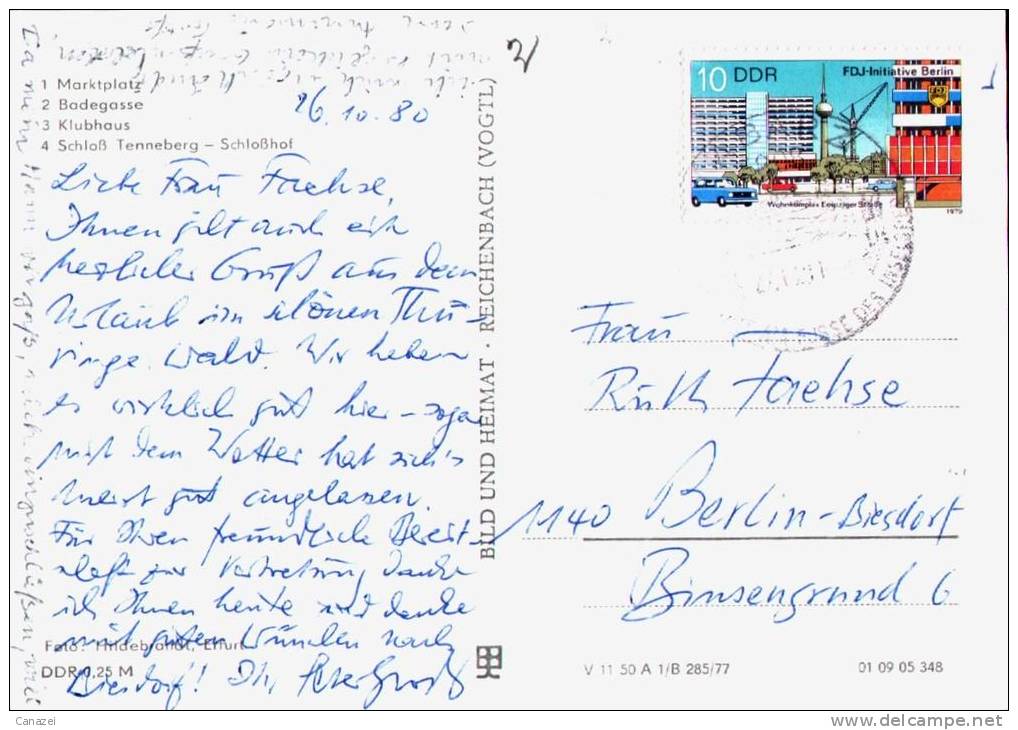 1 Marktplatz
2 Badegasse
3 Klubhaus
4 Schloß Tenneberg – Schloßhof
26.10.80
Liebe Frau Faehse,
Ihnen gilt auch ein
herzlicher Gruß aus dem
Urlaub im schönen Thü-
ringer Wald. Wir haben
es wirklich gut hier – sogar
mit dem Wetter hat sich's
meist gut angelassen.
Für Ihren freundliche Bereit-
schaft zur Vertretung danke
ich Ihnen heute und denke
mit guten Wünschen nach
Biesdorf! Ihr
Foto: Hildebrandt, Erfurt
DDR 0,25 M
BILD UND HEIMAT · REICHENBACH (VOGTL)
10 DDR
FDJ-Initiative Berlin
FDJ
Wohnkomplex Leipziger Straße
1979
Frau
Ruth Faehse
1140 Berlin-Biesdorf
Binsengrund 6
V 11 50 A 1/B 285/77
01 09 05 348
Canazei
www.delcampe.net